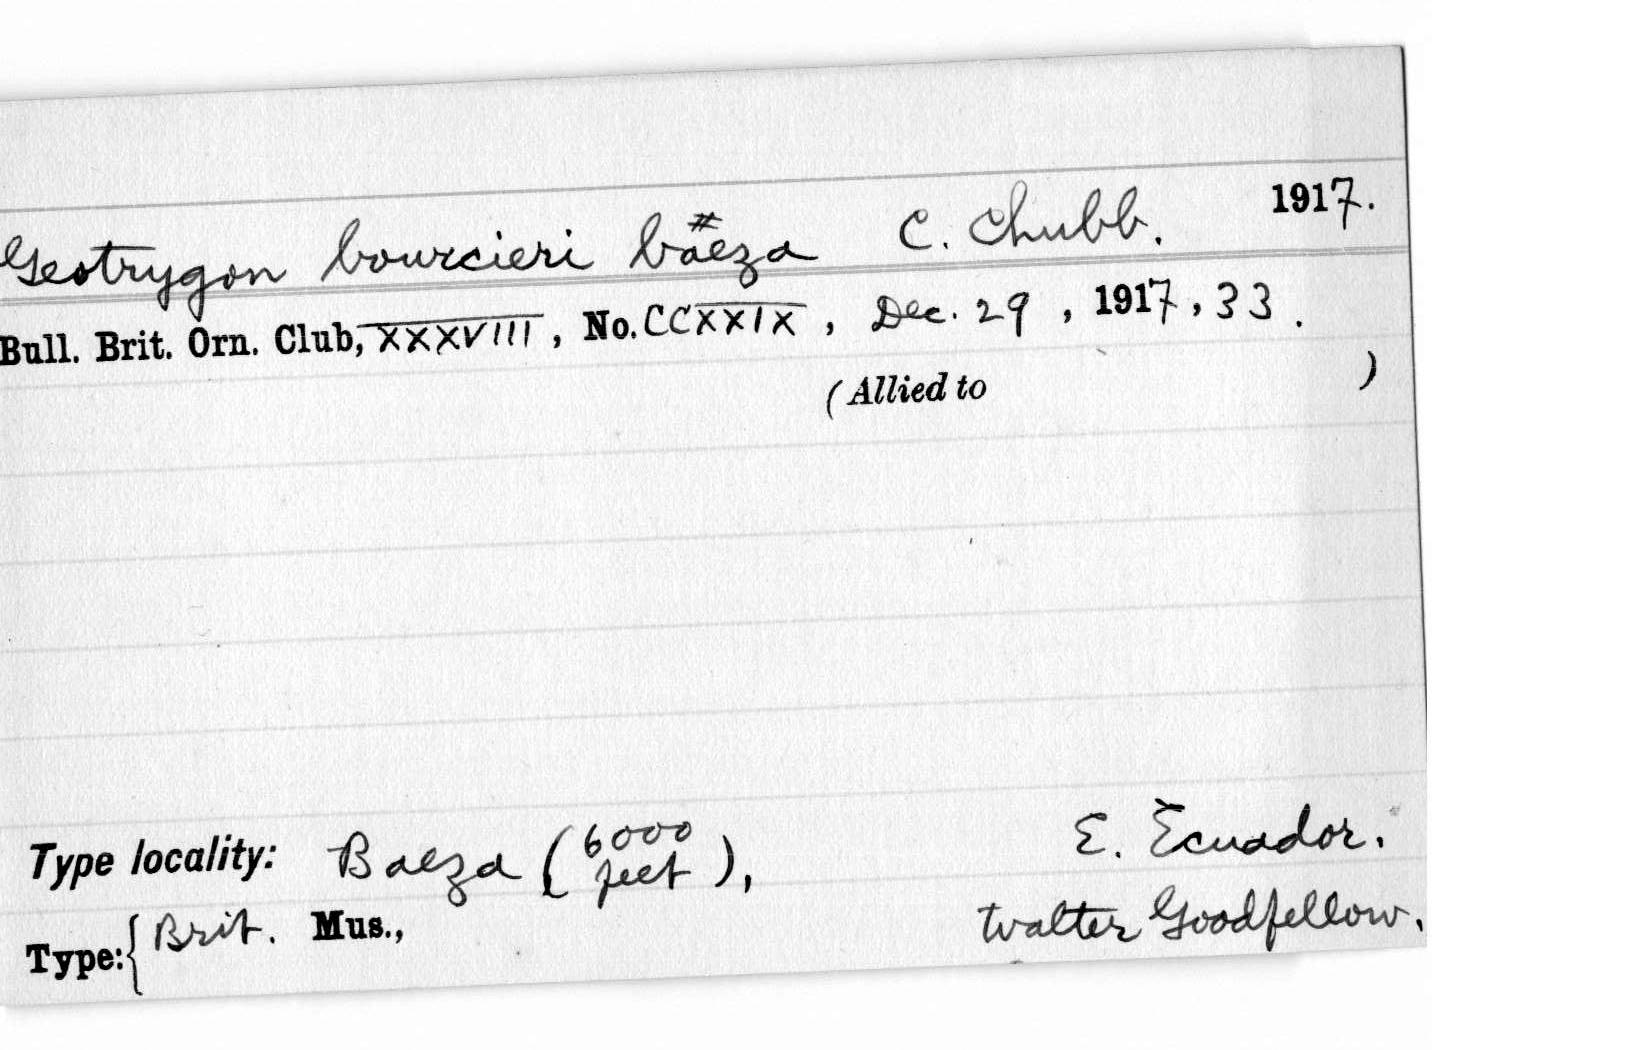 Geotrygon bourcieri bäeza # C. Chubb. 1917.
Bull. Brit. Orn. Club, XXXVIII, No. CCXXIX, Dec. 29, 1917, 33.
(Allied to )
Type locality: Baeza (6000 feet), E. Ecuador.
Type: { Brit. Mus., Walter Goodfellow.